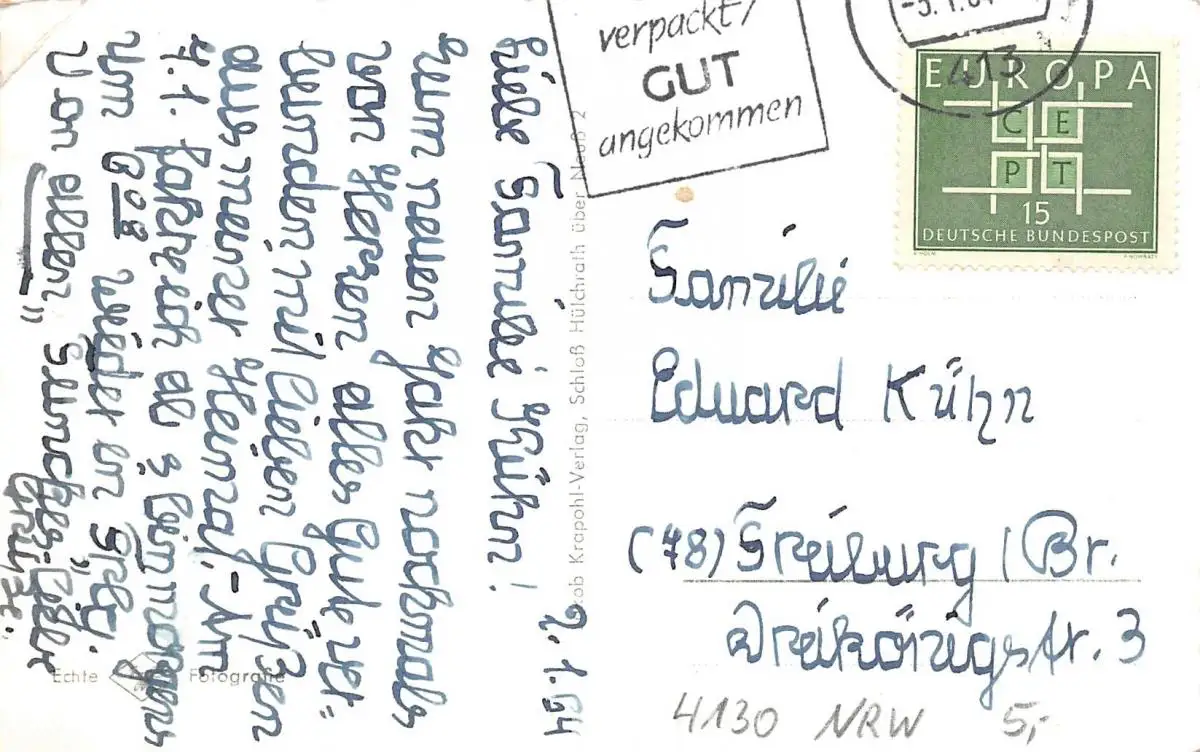 verpackt/
GUT
angekommen
413
EUROPA
CEPT
15
DEUTSCHE BUNDESPOST
2.1.64
Liebe Familie Kühn!
Zum neuen Jahr nochmals
von Herzen alles Gute ver=
bunden mit lieben Grüßen
aus meiner Heimat,- Am
4.1. fahre ich ab
um wieder in Frbg.
Von allen
Grüße
ob Krapohl-Verlag, Schloß Hülchrath über Neuß 2
Echte Fotografie
Familie
Eduard Kühn
(78) Freiburg / Br.
Dreikönigstr. 3
4130 NRW 5,-